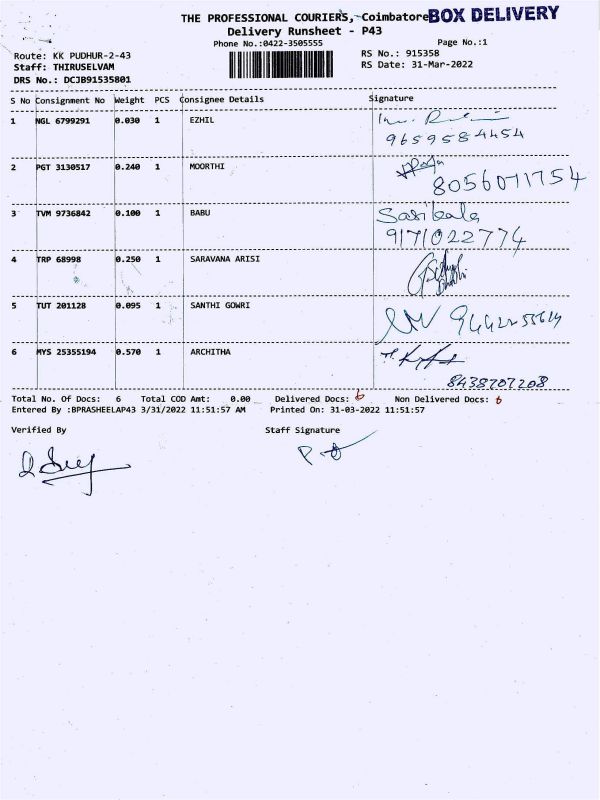 THE PROFESSIONAL COURIERS, Coimbatore BOX DELIVERY
Delivery Runsheet - P43
Phone No.:0422-3505555
Page No.:1
Route: KK PUDHUR-2-43
RS No.: 915358
Staff: THIRUSELVAM
RS Date: 31-Mar-2022
DRS No.: DCJB91535801
S No Consignment No Weight PCS Consignee Details Signature
1 NGL 6799291 0.030 1 EZHIL
9659584454
2 PGT 3130517 0.240 1 MOORTHI
8056071754
3 TVM 9736842 0.100 1 BABU Sasikala
9171022774
4 TRP 68998 0.250 1 SARAVANA ARISI
5 TUT 201128 0.095 1 SANTHI GOWRI
6 MYS 25355194 0.570 1 ARCHITHA
8438707208
Total No. Of Docs: 6 Total COD Amt: 0.00 Delivered Docs: 6 Non Delivered Docs: 6
Entered By :BPRASHEELAP43 3/31/2022 11:51:57 AM Printed On: 31-03-2022 11:51:57
Verified By Staff Signature